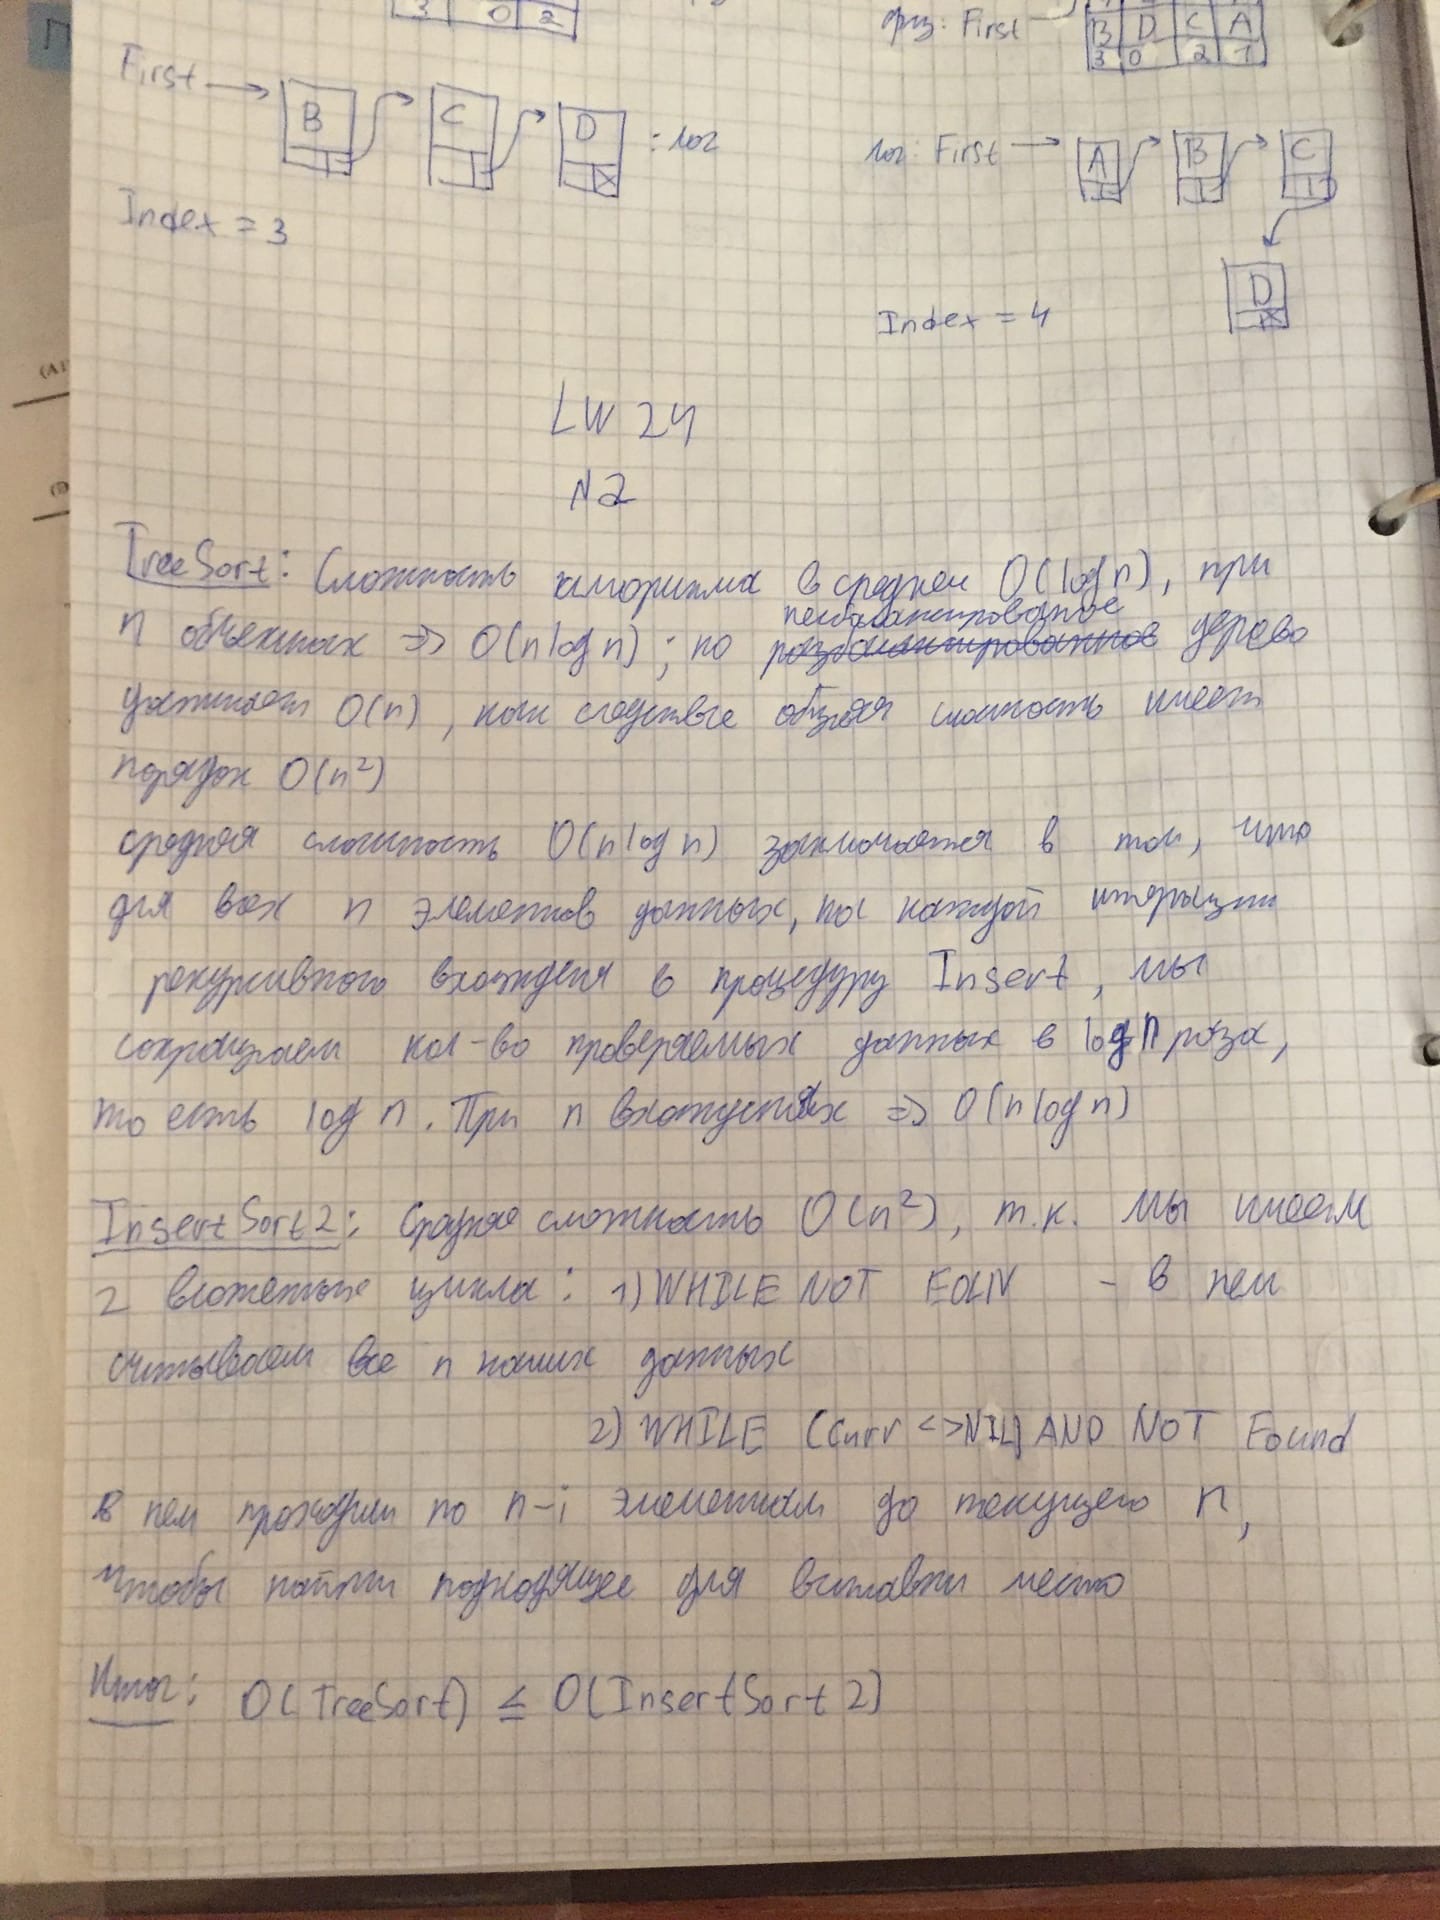 3 0 2
физ: First
B D C A
3 0 2 1
First
B C D : лог
лог: First
A B C
Index = 3
D
Index = 4
LW 24
N2
TreeSort: Сложность алгоритма в среднем O(log n), при
несбалансированное
n объектах => O(n log n); но разбалансированное дерево
O(n), как следствие общая сложность имеет
порядок O(n²)
средняя сложность O(n log n) заключается в том, что
для всех n элементов данных, на каждой итерации
рекурсивного вхождения в процедуру Insert, мы
сокращаем кол-во проверяемых данных в log n раза,
то есть log n. При n вхождениях => O(n log n)
InsertSort2: Средняя сложность O(n²), т.к. мы имеем
2 вложенные цикла: 1) WHILE NOT EOLN - в нем
считываем все n наших данных
2) WHILE (Curr <> NIL) AND NOT Found
в нем проходим по n-i элементам до текущего n,
чтобы найти подходящее для вставки место
Итог: O(TreeSort) ≤ O(InsertSort2)